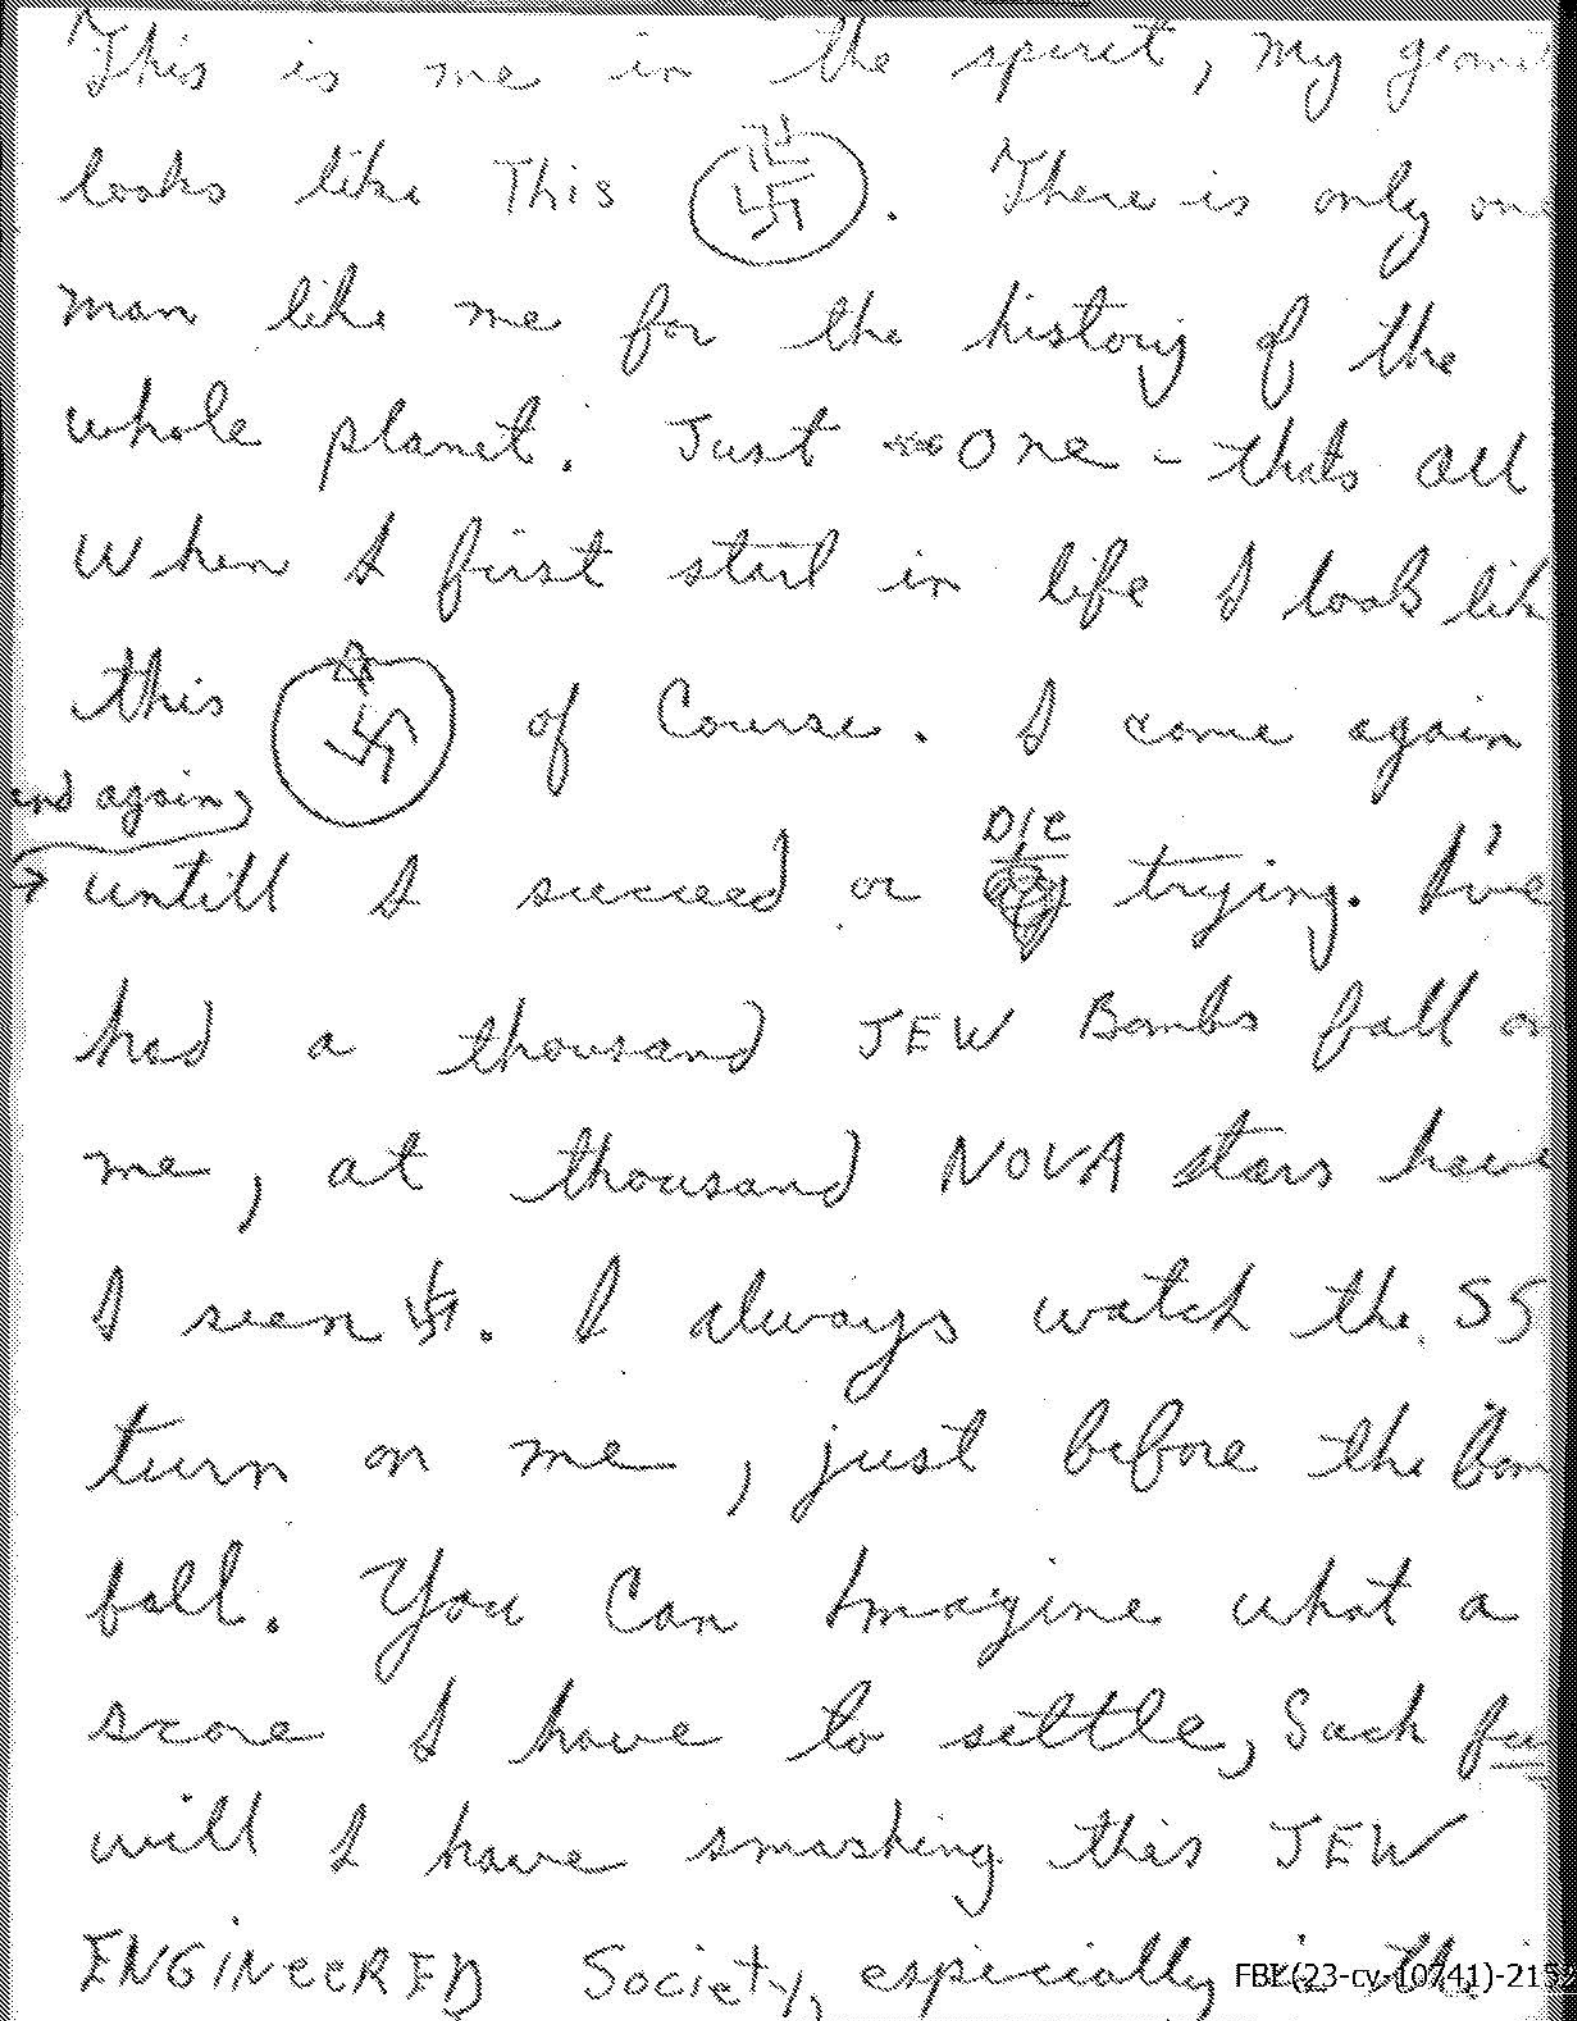 This is me in the spirit, my
looks like This 卐. There is only one
man like me for the history of the
whole planet. Just One - thats all
When I first start in life I look lik
this 卐 of Course. I come again
and again
→ untill I succeed or DIE trying. I've
had a thousand JEW Bombs fall on
me, at thousand NOVA stars have
I seen 卐. I always watch the SS
turn on me, just before the Bom
fall. You Can Imagine what a
score I have to settle, Such
will I have smashing this JEW
ENGINEERED Society, especially
FBI(23-cv-10741)-2152